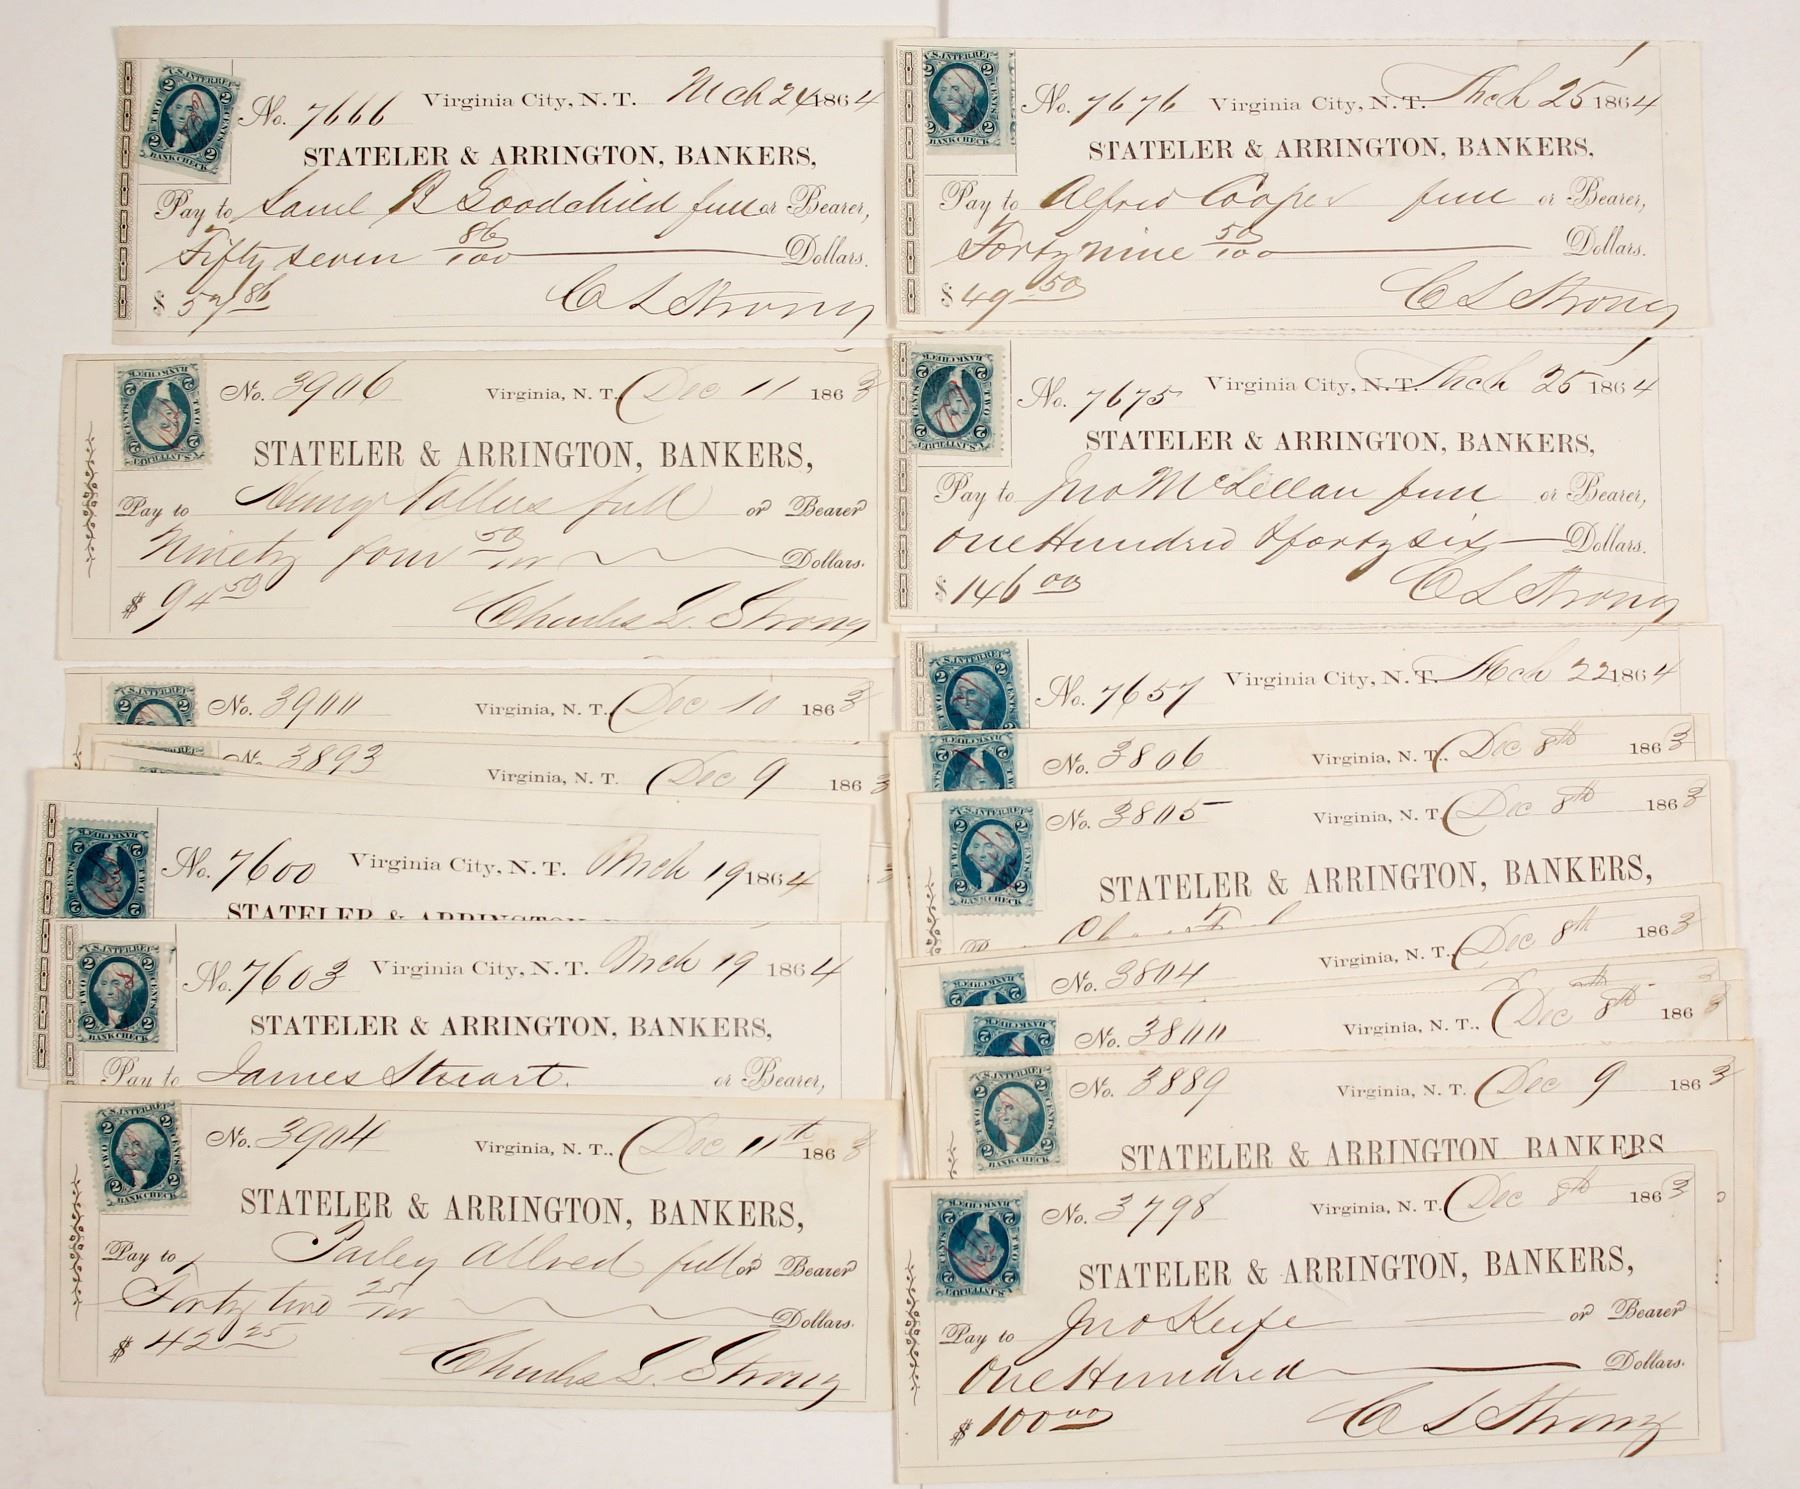 No. 7666 Virginia City, N. T. Mch 24 1864
STATELER & ARRINGTON, BANKERS,
Pay to Saml B Goodchild full or Bearer,
Fifty seven 86/100 Dollars.
$ 57 86
C L Strong
U.S. INTER. REV.
TWO CENTS
BANK CHECK
No. 3906 Virginia, N. T. Dec 11 1863
STATELER & ARRINGTON, BANKERS,
Pay to Henry full or Bearer
Ninety four 50/100 Dollars.
$ 94 50
Charles L. Strong
No. 3900 Virginia, N. T., Dec 10 1863
No. 3893 Virginia, N. T. Dec 9 1863
No. 7600 Virginia City, N. T. Mch 19 1864
STATELER & ARRINGTON
No. 7603 Virginia City, N. T. Mch 19 1864
STATELER & ARRINGTON, BANKERS,
Pay to James Stuart. or Bearer,
No. 3904 Virginia, N. T., Dec 11th 1863
STATELER & ARRINGTON, BANKERS,
Pay to Parley Allred full or Bearer
Forty two 25/100 Dollars.
$ 42 25
Charles L. Strong
No. 7676 Virginia City, N. T. Mch 25 1864
STATELER & ARRINGTON, BANKERS,
Pay to Alfred Cooper full or Bearer,
Forty nine 50/100 Dollars.
$ 49 50
C L Strong
No. 7675 Virginia City, N. T. Mch 25 1864
STATELER & ARRINGTON, BANKERS,
Pay to Jno McLellan full or Bearer,
One Hundred & forty six Dollars.
$ 146 00
C L Strong
No. 7657 Virginia City, N. T. Mch 22 1864
No. 3806 Virginia, N. T., Dec 8th 1863
No. 3805 Virginia, N. T. Dec 8th 1863
STATELER & ARRINGTON, BANKERS,
No. 3804 Virginia, N. T., Dec 8th 1863
No. 3800 Virginia, N. T., Dec 8th 1863
No. 3889 Virginia, N. T. Dec 9 1863
STATELER & ARRINGTON BANKERS
No. 3798 Virginia, N. T. Dec 8th 1863
STATELER & ARRINGTON, BANKERS,
Pay to Jno Keefe or Bearer
One Hundred Dollars.
$ 100 00
C L Strong